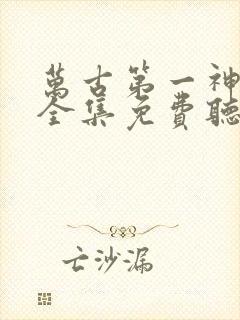 萬古第一神
全集免費聽
亡沙漏